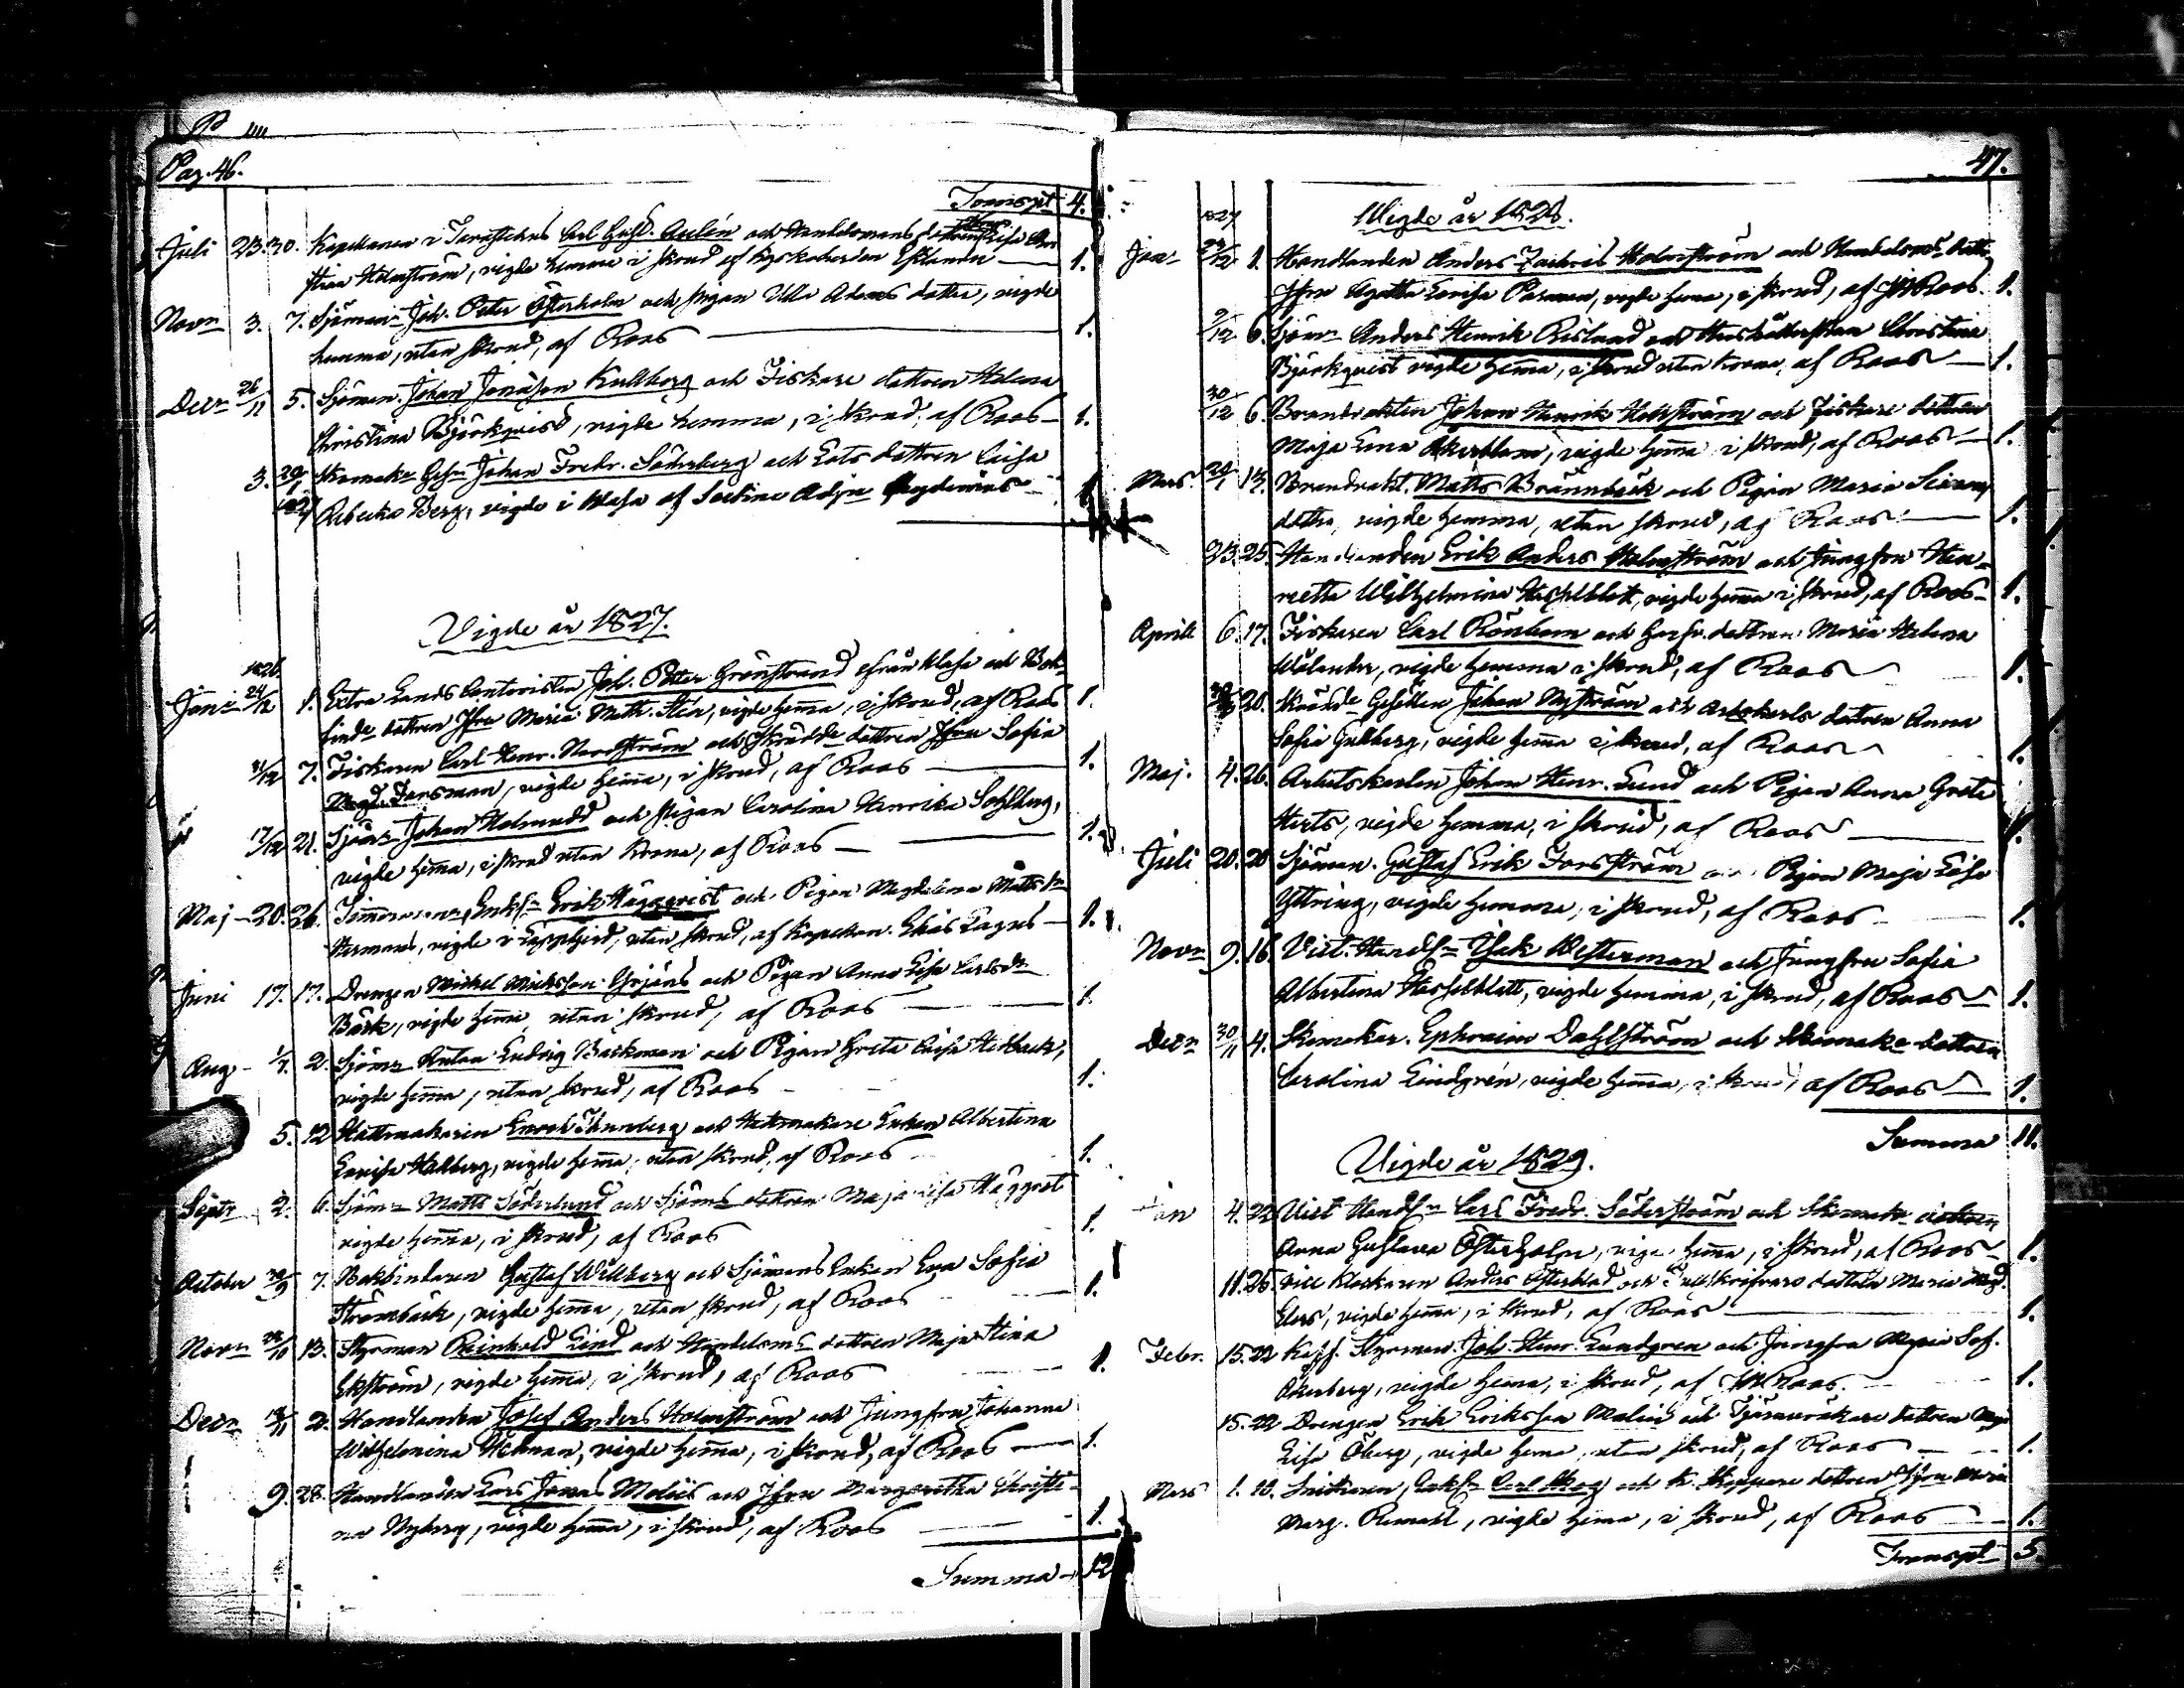 Pag. 46.
Transpt 4.
Juli 23. 30. Kapellanen i Carl Gust. Aulén och Handelsmans dottren Lisa
Holmström, vigde hemma i skrud af Kyrkoherden 1.
Novr 3. 7. Sjöman Joh. Peter Österholm och pigan Ulla Adams dotter, vigde
hemma, utan skrud, af Roos 1.
Decr 26/11 5. Sjöman Johan Jonasson Kullberg och Fiskare dottren Helena
Christina Björkqvist, vigde hemma, i skrud, af Roos 1.
3. 29/1 1827 Skomak. Ges. Johan Fredr. Söderberg och Lots dottren Caisa
Rebecka Berg, vigde i Wasa af Sectine Adj. 1.
Vigde år 1827.
1826.
Janr 24/12 1. Extra Lands Contoristen Joh. Petter Grönstrand ifrån Wasa och Bok-
binde dottren Jfru Maria Math. Sten, vigde hemma, i skrud, af Roos 1.
31/12 7. Fiskaren Carl Henr. Nordström och Skrädde dottren Jfru Sofia
Magd. Forsman, vigde hemma, i skrud, af Roos 1.
17/12 21. Sjöm. Johan Holmudd och pigan Carolina Henrika Sohlberg,
vigde hemma, i skrud utan krona, af Roos 1.
Maj 20. 26. Timmerman, Enkl. Erik Häggqvist och Pigan Magdalena Matts dr
Hermans, vigde i Lappfjerd, utan skrud, af Kapellan. Elias Lagus 1.
Juni 17. 17. Drengen Mickel Mickelsson Grjäns och Pigan Anna Lisa Carlsdr
Bäck, vigde hemma utan skrud, af Roos 1.
Aug 1/7. 2. Sjöm. Anton Ludvig Backman och Pigan Greta Caisa Hedback,
vigde hemma, utan skrud, af Roos 1.
5. 12 Hattmakaren Enoch Thunberg och Hattmakare Enkan Albertina
Lovisa Hallberg, vigde hemma, utan skrud, af Roos 1.
Septr 2. 6. Sjöm. Matts Söderlund och Sjöms dottren Maja Lisa Häggret
vigde hemma, i skrud, af Roos 1.
October 30/9 7. Bokbindaren Gustaf Willberg och Sjömans Enkan Eva Sofia
Strömbäck, vigde hemma, utan skrud, af Roos 1.
Novr 28/10 13. Styrman Reinhold Lind och Handelsms dottren Maja Stina
Ekström, vigde hemma, i skrud, af Roos 1.
Decr 18/11 2. Handlanden Josef Anders Holmström och Jungfru Johanna
Wilhelmina Hedman, vigde hemma, i skrud, af Roos 1.
9. 28. Handlanden Lars Jonas Molüs och Jfru Margaretha Christi-
na Nyberg, vigde hemma, i skrud, af Roos 1.
Summa 12
47.
Vigde år 1828.
1827
Janr 24/12 1. Handlanden Anders Zachris Holmström och Handelsms dottr
Jfru Agatha Lovisa Parman, vigde hema, i skrud, af JW Roos. 1.
9/12 6. Sjöm. Anders Henrik Roslund och Hushållerskan Christina
Björkqvist vigde hemma, i skrud utan krona, af Roos 1.
30/12 6. Brandvakten Johan Henrik Hellström och Fiskare dottren
Maja Lena Åkerblom, vigde hemma i skrud, af Roos 1.
Mars. 24/1 14. Brandvakt. Matts Brännbäck och Pigan Maria
dotter, vigde hemma, utan skrud, af Roos 1.
23. 25. Handlanden Erik Anders Holmström och Jungfru Hen-
rietta Wilhelmina Hasselblatt, vigde hemma i skrud, af Roos 1.
Aprill 6. 17. Fiskaren Carl Rönholm och Garfv. dottren Maria Helena
Wålander, vigde hemma i skrud, af Roos 1.
20. Skrädde Gesellen Johan Nyström och Arbskarls dottren Anna
Sofia Gullberg, vigde hemma i skrud, af Roos 1.
Maj. 4. 26. Arbetskarlen Johan Henr. Lund och Pigan Anna Greta
Herts, vigde hemma, i skrud, af Roos 1.
Juli 20. 20 Sjöman. Gustaf Erik Forsström och Pigan Maja Lisa
Yttring, vigde hemma, i skrud, af Roos 1.
Novr 9. 16. Vict. Handl. Isak Westerman och Jungfru Sofia
Albertina Hasselblatt, vigde hemma, i skrud, af Roos 1.
Decr 30/11 4. Skomakar. Ephraim Dahlström och Skomak. dottren
Carolina Lindgrén, vigde hemma, i skrud, af Roos 1.
Summa 11.
Vigde år 1829.
Jan 4. 22 Vict Handl. Carl Fredr. Söderström och Skomak. dottren
Anna Gustava Österholm, vigde hemma, i skrud, af Roos 1.
11. 25. vice Klockaren Anders Österblad och Tullskrifvars dottren Maria Magd.
Elers, vigde hemma, i skrud, af Roos 1.
Febr. 15. 22 Koff. Styrman. Joh. Henr. Lundgren och Jungfru Maria Sof.
Åkerberg, vigde hemma, i skrud, af JW Roos. 1.
15. 22 Drengen Erik Eriksson Malüs och Tjärurakare dottren Maja
Lisa Öberg, vigde hema, utan skrud, af Roos 1.
Mars 1. 10. Snickaren, Enkl. Carl Skog och K. Skeppare dottren Jfru Maria
Marg. Remahl, vigde hema, i skrud, af Roos 1.
Transpt 5.